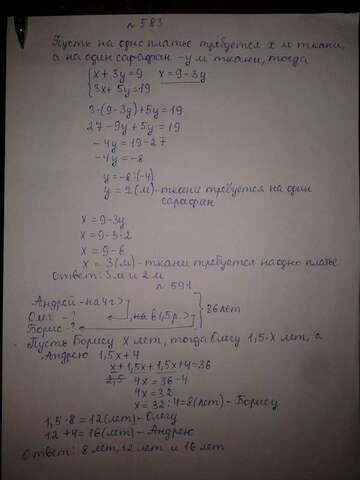 № 583
Пусть на одно платье требуется x м ткани,
а на один сарафан - y м ткани, тогда
{x + 3y = 9    x = 9 - 3y
{3x + 5y = 19
3·(9-3y)+5y = 19
27 - 9y + 5y = 19
- 4y = 19 - 27
- 4y = -8
y = -8:(-4)
y = 2(м) - ткани требуется на один
сарафан
x = 9 - 3y
x = 9 - 3·2
x = 9 - 6
x = 3(м) - ткани требуется на одно платье.
Ответ: 3м и 2м
№ 591
Андрей - на 4 г >
Олег - ? , на в 1,5 р. > } 36 лет
Борис - ?
Пусть Борису x лет, тогда Олегу 1,5·x лет, а
Андрею 1,5x + 4
x + 1,5x + 1,5x + 4 = 36
2,5 4x = 36 - 4
4x = 32
x = 32 : 4 = 8(лет) - Борису
1,5·8 = 12(лет) - Олегу
12 + 4 = 16(лет) - Андрею
Ответ: 8 лет, 12 лет и 16 лет